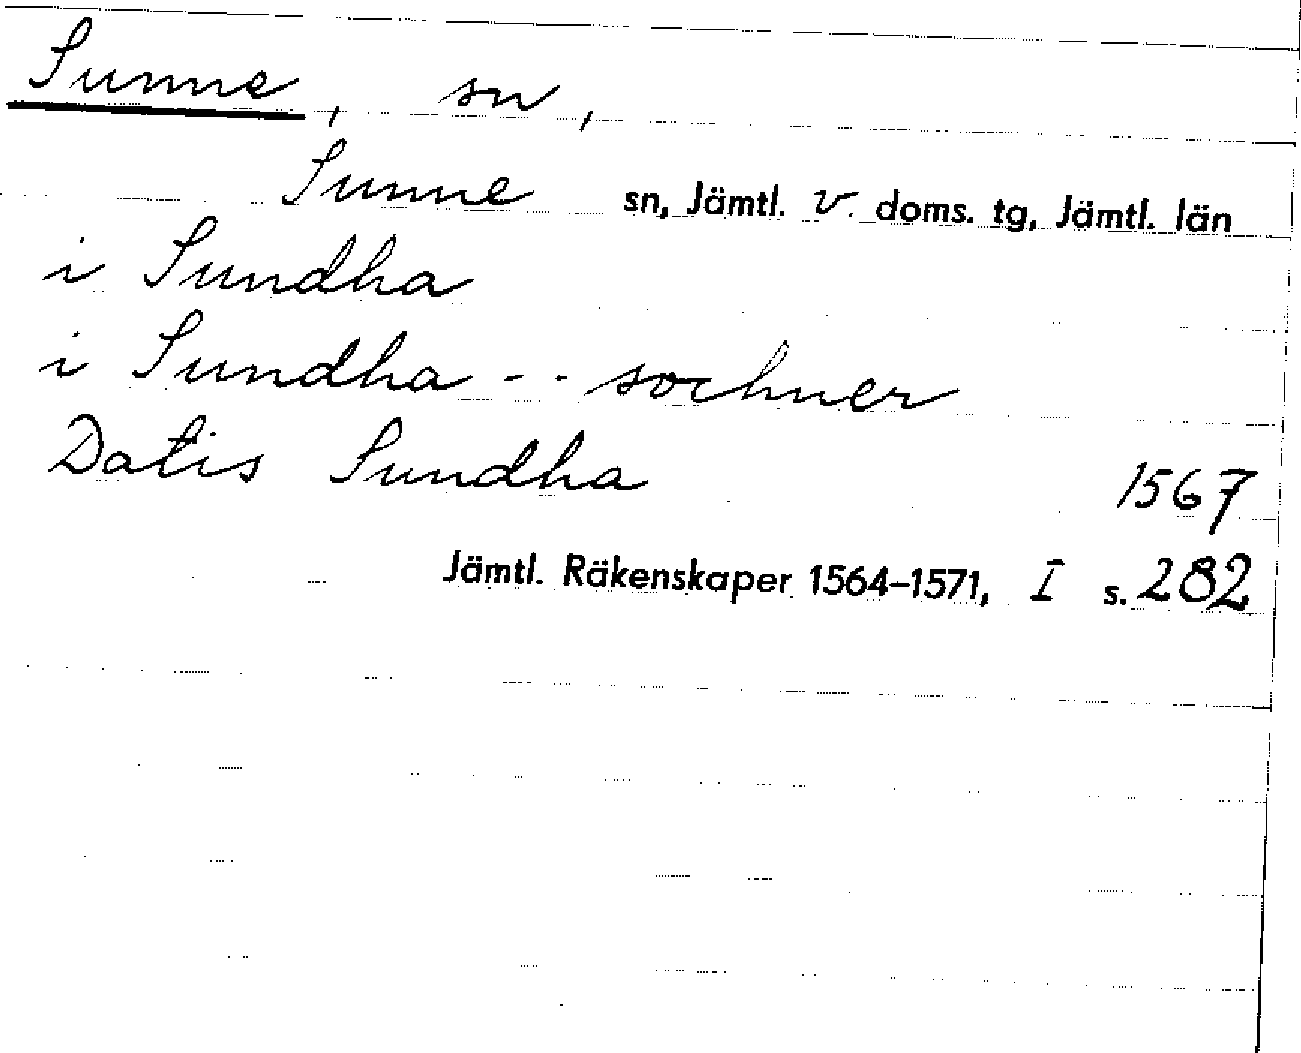 Sunne, sn,
Sunne sn, Jämtl. v. doms. tg, Jämtl. län
i Sundha
i Sundha - - sochner
Datis Sundha 1567
Jämtl. Räkenskaper 1564–1571, I s. 282